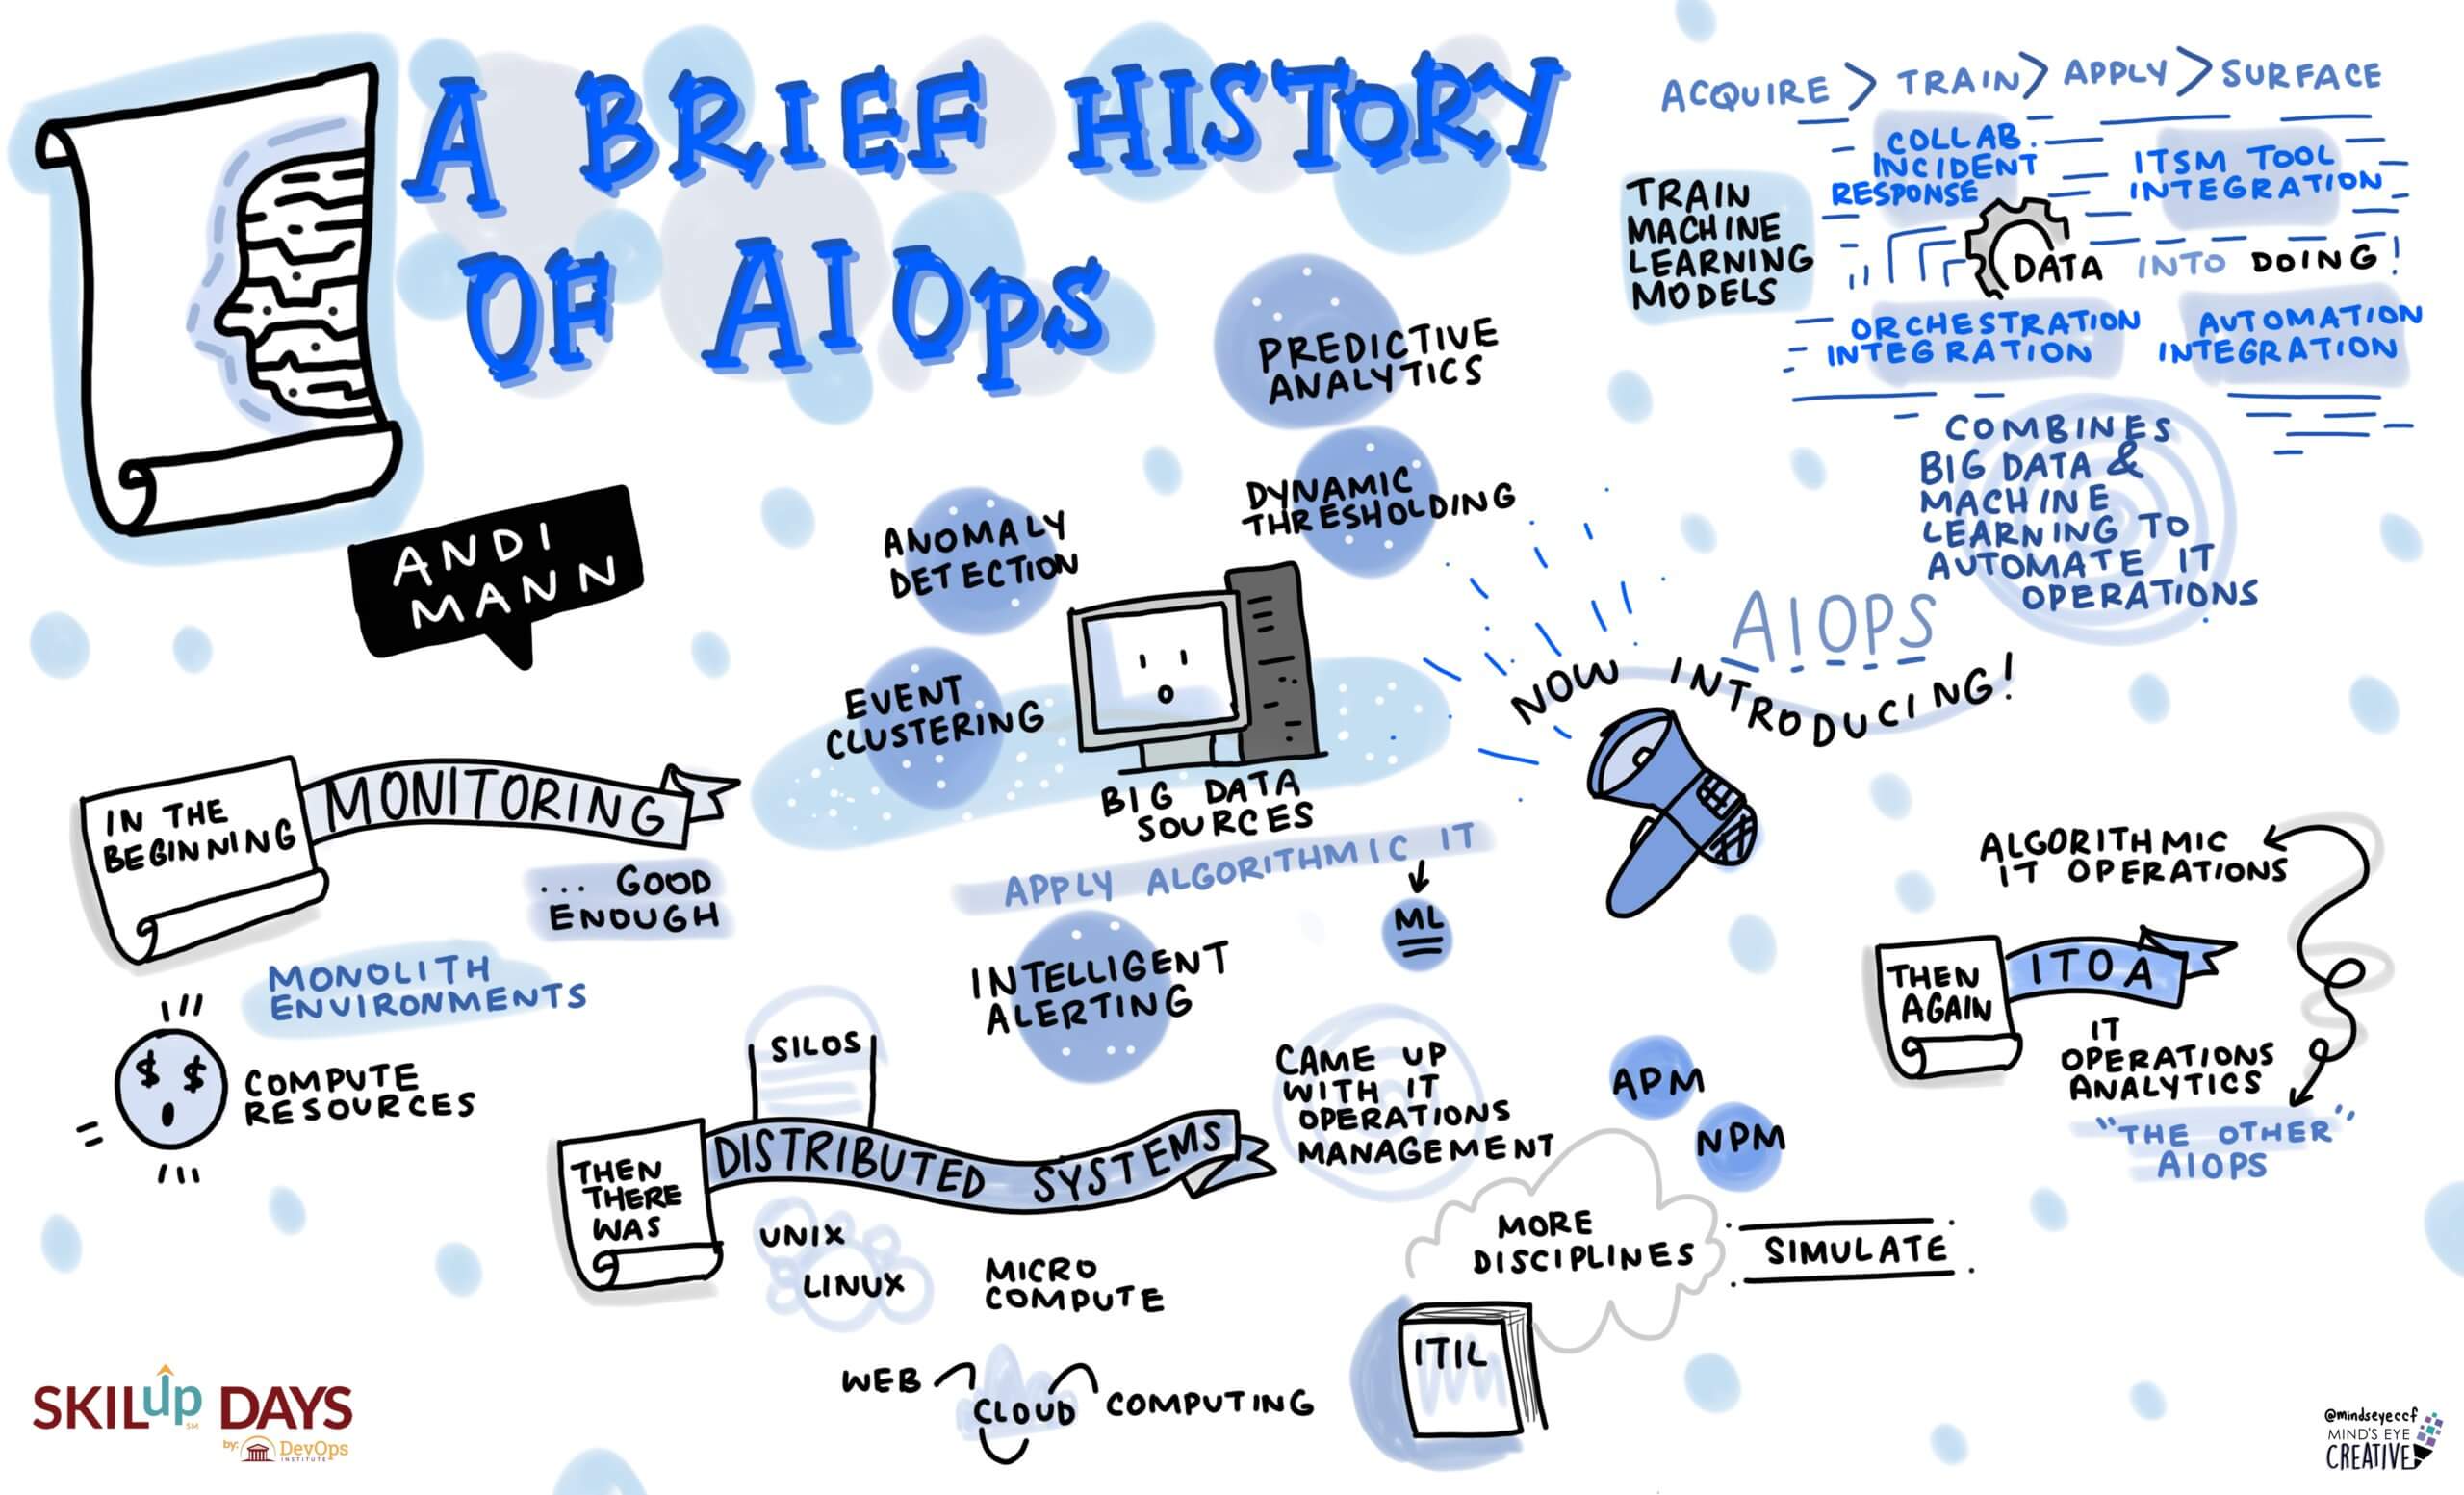 A BRIEF HISTORY
OF AIOps
ANDI
MANN
IN THE
BEGINNING
MONITORING
... GOOD
ENOUGH
MONOLITH
ENVIRONMENTS
$ $
COMPUTE
RESOURCES
THEN
THERE
WAS
DISTRIBUTED SYSTEMS
SILOS
UNIX
LINUX
MICRO
COMPUTE
WEB
CLOUD
COMPUTING
CAME UP
WITH IT
OPERATIONS
MANAGEMENT
APM
NPM
MORE
DISCIPLINES
SIMULATE
ITIL
THEN
AGAIN
ITOA
IT
OPERATIONS
ANALYTICS
"THE OTHER"
AIOPS
ALGORITHMIC
IT OPERATIONS
PREDICTIVE
ANALYTICS
DYNAMIC
THRESHOLDING
ANOMALY
DETECTION
EVENT
CLUSTERING
BIG DATA
SOURCES
APPLY ALGORITHMIC IT
ML
INTELLIGENT
ALERTING
NOW INTRODUCING!
AIOPS
COMBINES
BIG DATA &
MACHINE
LEARNING TO
AUTOMATE IT
OPERATIONS
ACQUIRE > TRAIN > APPLY > SURFACE
TRAIN
MACHINE
LEARNING
MODELS
COLLAB.
INCIDENT
RESPONSE
ITSM TOOL
INTEGRATION
DATA INTO DOING!
ORCHESTRATION
INTEGRATION
AUTOMATION
INTEGRATION
SKILup DAYS
SM
by: DevOps
INSTITUTE
@mindseyeccf
MIND'S EYE
CREATIVE